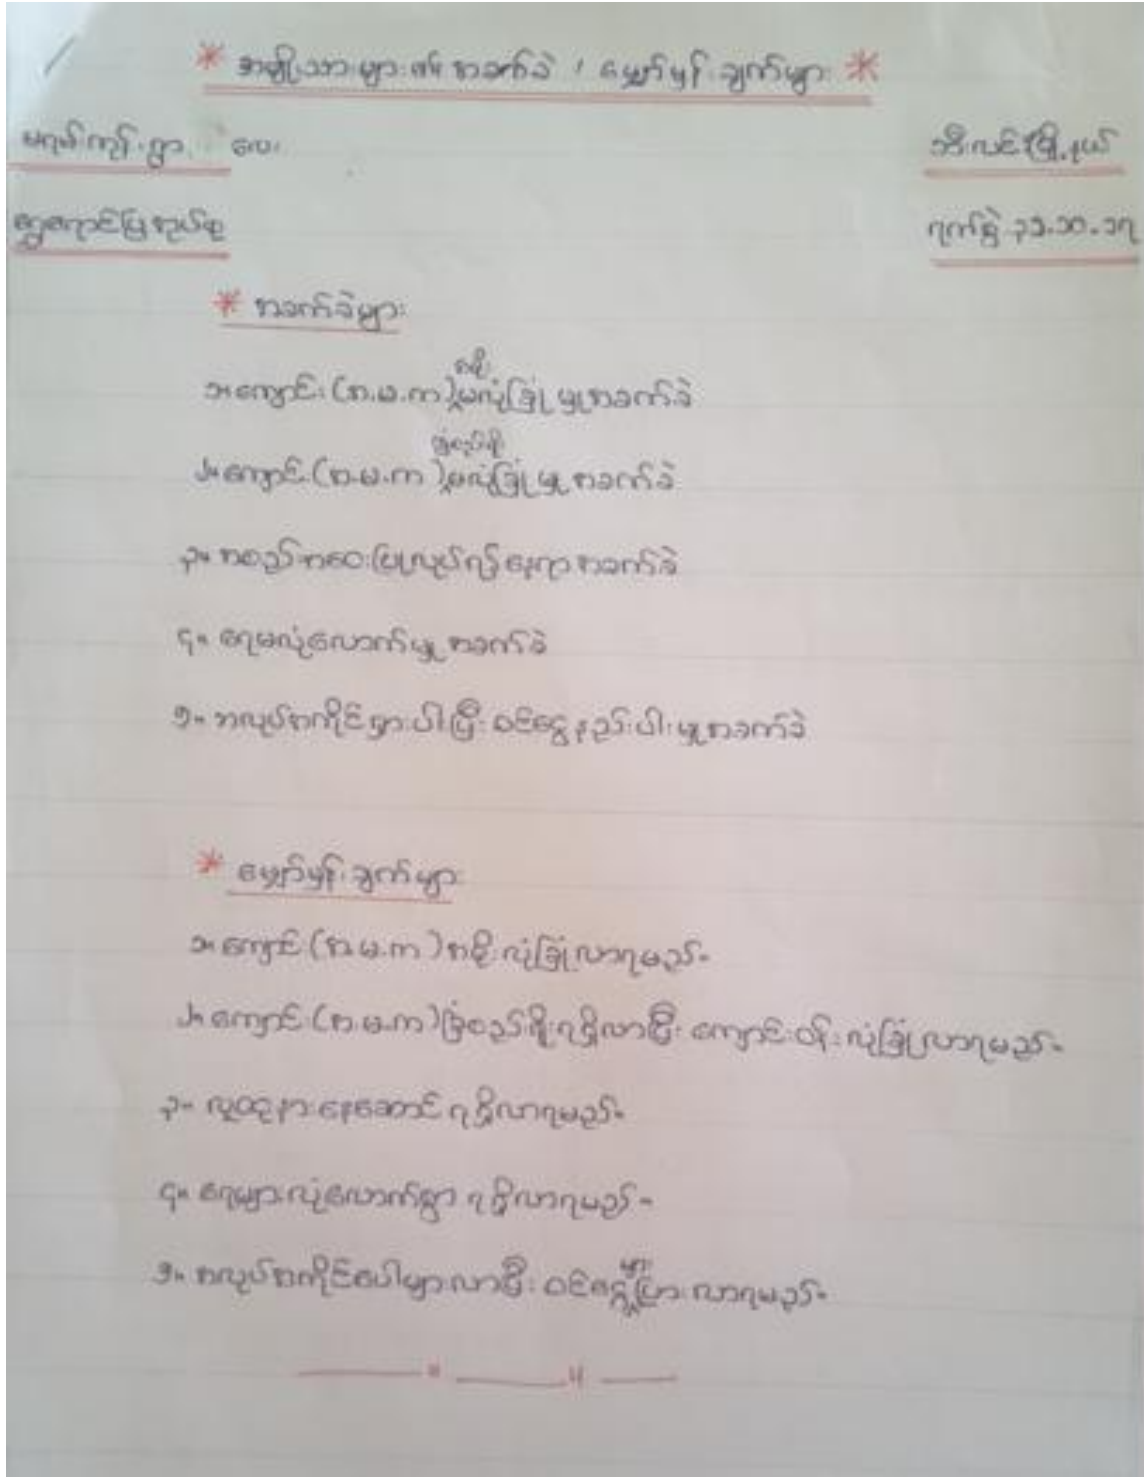 * အမျိုးသားများ၏ အခက်ခဲ ၊ မျှော်မှန်းချက်များ *
မရမ်းကုန်းရွာ လေး ဘီးလင်းမြို့နယ်
ရွှေရောင်မြေအုပ်စု ရက်စွဲ ၃၁.၁၀.၁၇
* အခက်ခဲများ
၁။ ကျောင်း (အ.မ.က) အမိုး မလုံခြုံမှုအခက်ခဲ
၂။ ကျောင်း (အ.မ.က) ခြံစည်းရိုး မလုံခြုံမှုအခက်ခဲ
၃။ အစည်းအဝေးပြုလုပ်ရန်နေရာအခက်ခဲ
၄။ ရေမလုံလောက်မှုအခက်ခဲ
၅။ အလုပ်အကိုင်ရှားပါးပြီး ဝင်ငွေနည်းပါးမှုအခက်ခဲ
* မျှော်မှန်းချက်များ
၁။ ကျောင်း (အ.မ.က) အမိုးလုံခြုံလာရမည်။
၂။ ကျောင်း (အ.မ.က) ခြံစည်းရိုးရရှိလာပြီး ကျောင်းဝန်းလုံခြုံလာရမည်။
၃။ လူထုနားနေဆောင် ရရှိလာရမည်။
၄။ ရေများလုံလောက်စွာ ရရှိလာရမည်။
၅။ အလုပ်အကိုင်ပေါများလာပြီး ဝင်ငွေများပြားလာရမည်။